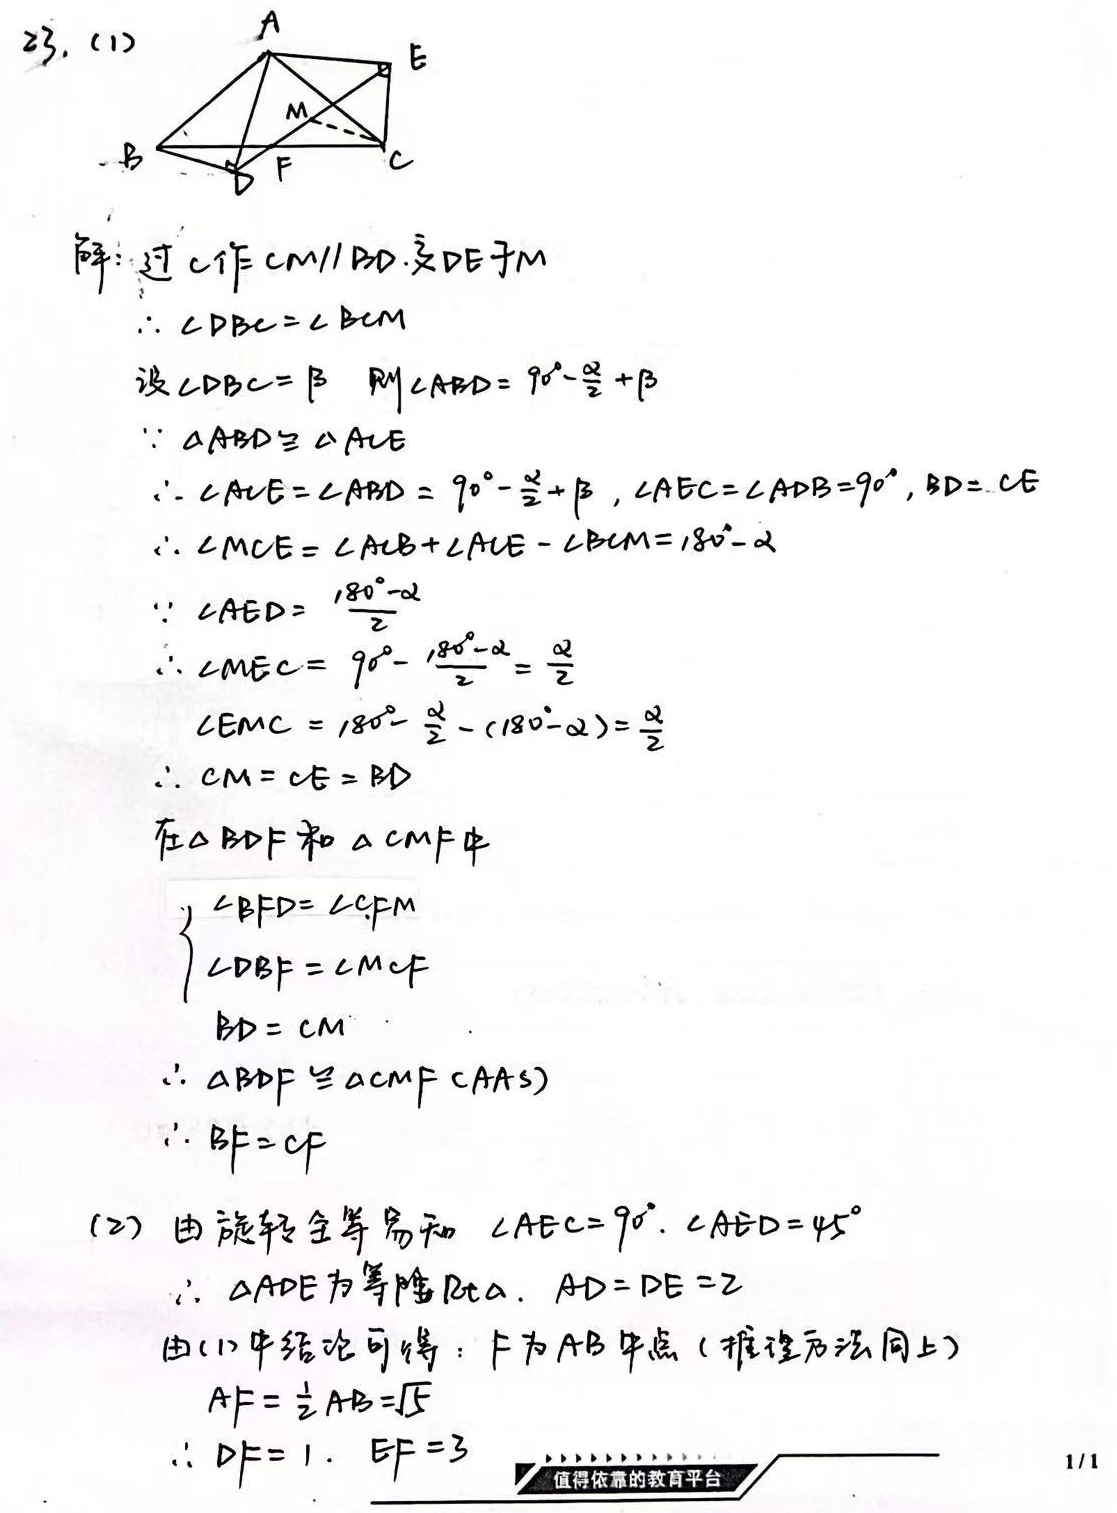 23. (1)
A
E
M
B
D
F
C
解: 过C作CM//BD.交DE于M
∴ ∠DBC=∠BCM
设∠DBC=β 则∠ABD=90°-α/2+β
∵ △ABD≌△ACE
∴ ∠ACE=∠ABD=90°-α/2+β, ∠AEC=∠ADB=90°, BD=CE
∴ ∠MCE=∠ACB+∠ACE-∠BCM=180°-α
∵ ∠AED=180°-α/2
∴ ∠MEC=90°-180°-α/2=α/2
∠EMC=180°-α/2-(180°-α)=α/2
∴ CM=CE=BD
在△BDF和△CMF中
∠BFD=∠CFM
∠DBF=∠MCF
BD=CM
∴ △BDF≌△CMF (AAS)
∴ BF=CF
(2) 由旋转全等易知 ∠AEC=90°. ∠AED=45°
∴ △ADE为等腰Rt△. AD=DE=2
由(1)中结论可得: F为AB中点(推理方法同上)
AF=1/2AB=√5
∴ DF=1. EF=3
值得依靠的教育平台
1/1